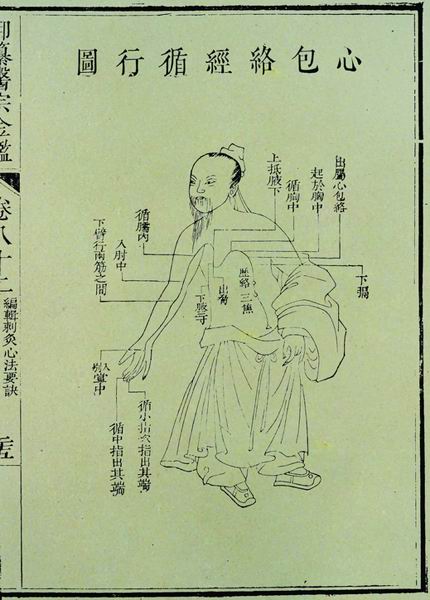 心包絡經循行圖
出屬心包絡
起於胸中
循胸中
上抵腋下
下膈
歷絡三焦
出脅
下腋三寸
循臑內
入肘中
下臂行兩筋之間
入掌中
循小指次指出其端
循中指出其端
御纂醫宗金鑑
卷八十二
編輯刺灸心法要訣